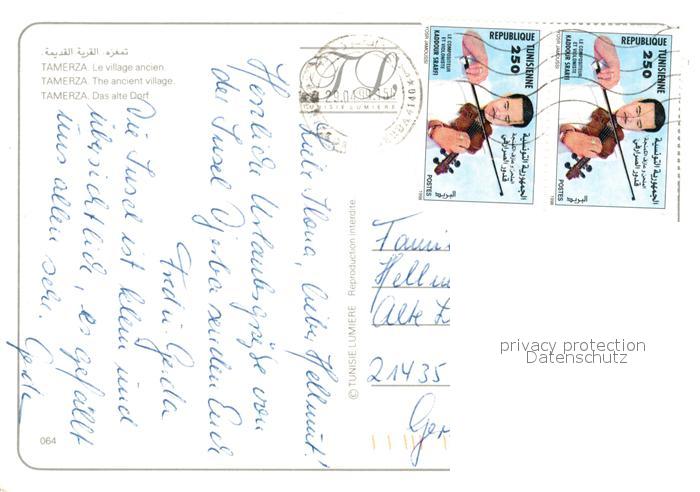 تمغزة. القرية القديمة.
TAMERZA. Le village ancien.
TAMERZA. The ancient village.
TAMERZA. Das alte Dorf.
Liebe Ilona, lieber Hellmut!
Herzliche Urlaubsgrüße von
der Insel Djerba senden Euch
Fred u. Gerda
Die Insel ist klein und
übersichtlich, es gefällt
uns allen sehr. Gerda
064
© TUNISIE LUMIERE Reproduction interdite
TL
TUNISIE LUMIERE
REPUBLIQUE TUNISIENNE
250
LE COMPOSITEUR
ET VIOLONISTE
KADDOUR SRARFI
YOSR JAMOUSSI
الجمهورية التونسية
قدور الصرارفي
البريد
POSTES
1998
REPUBLIQUE TUNISIENNE
250
LE COMPOSITEUR
ET VIOLONISTE
KADDOUR SRARFI
YOSR JAMOUSSI
الجمهورية التونسية
قدور الصرارفي
البريد
POSTES
1998
Fami
Hellm
Alte
21435
Ger
privacy protection
Datenschutz